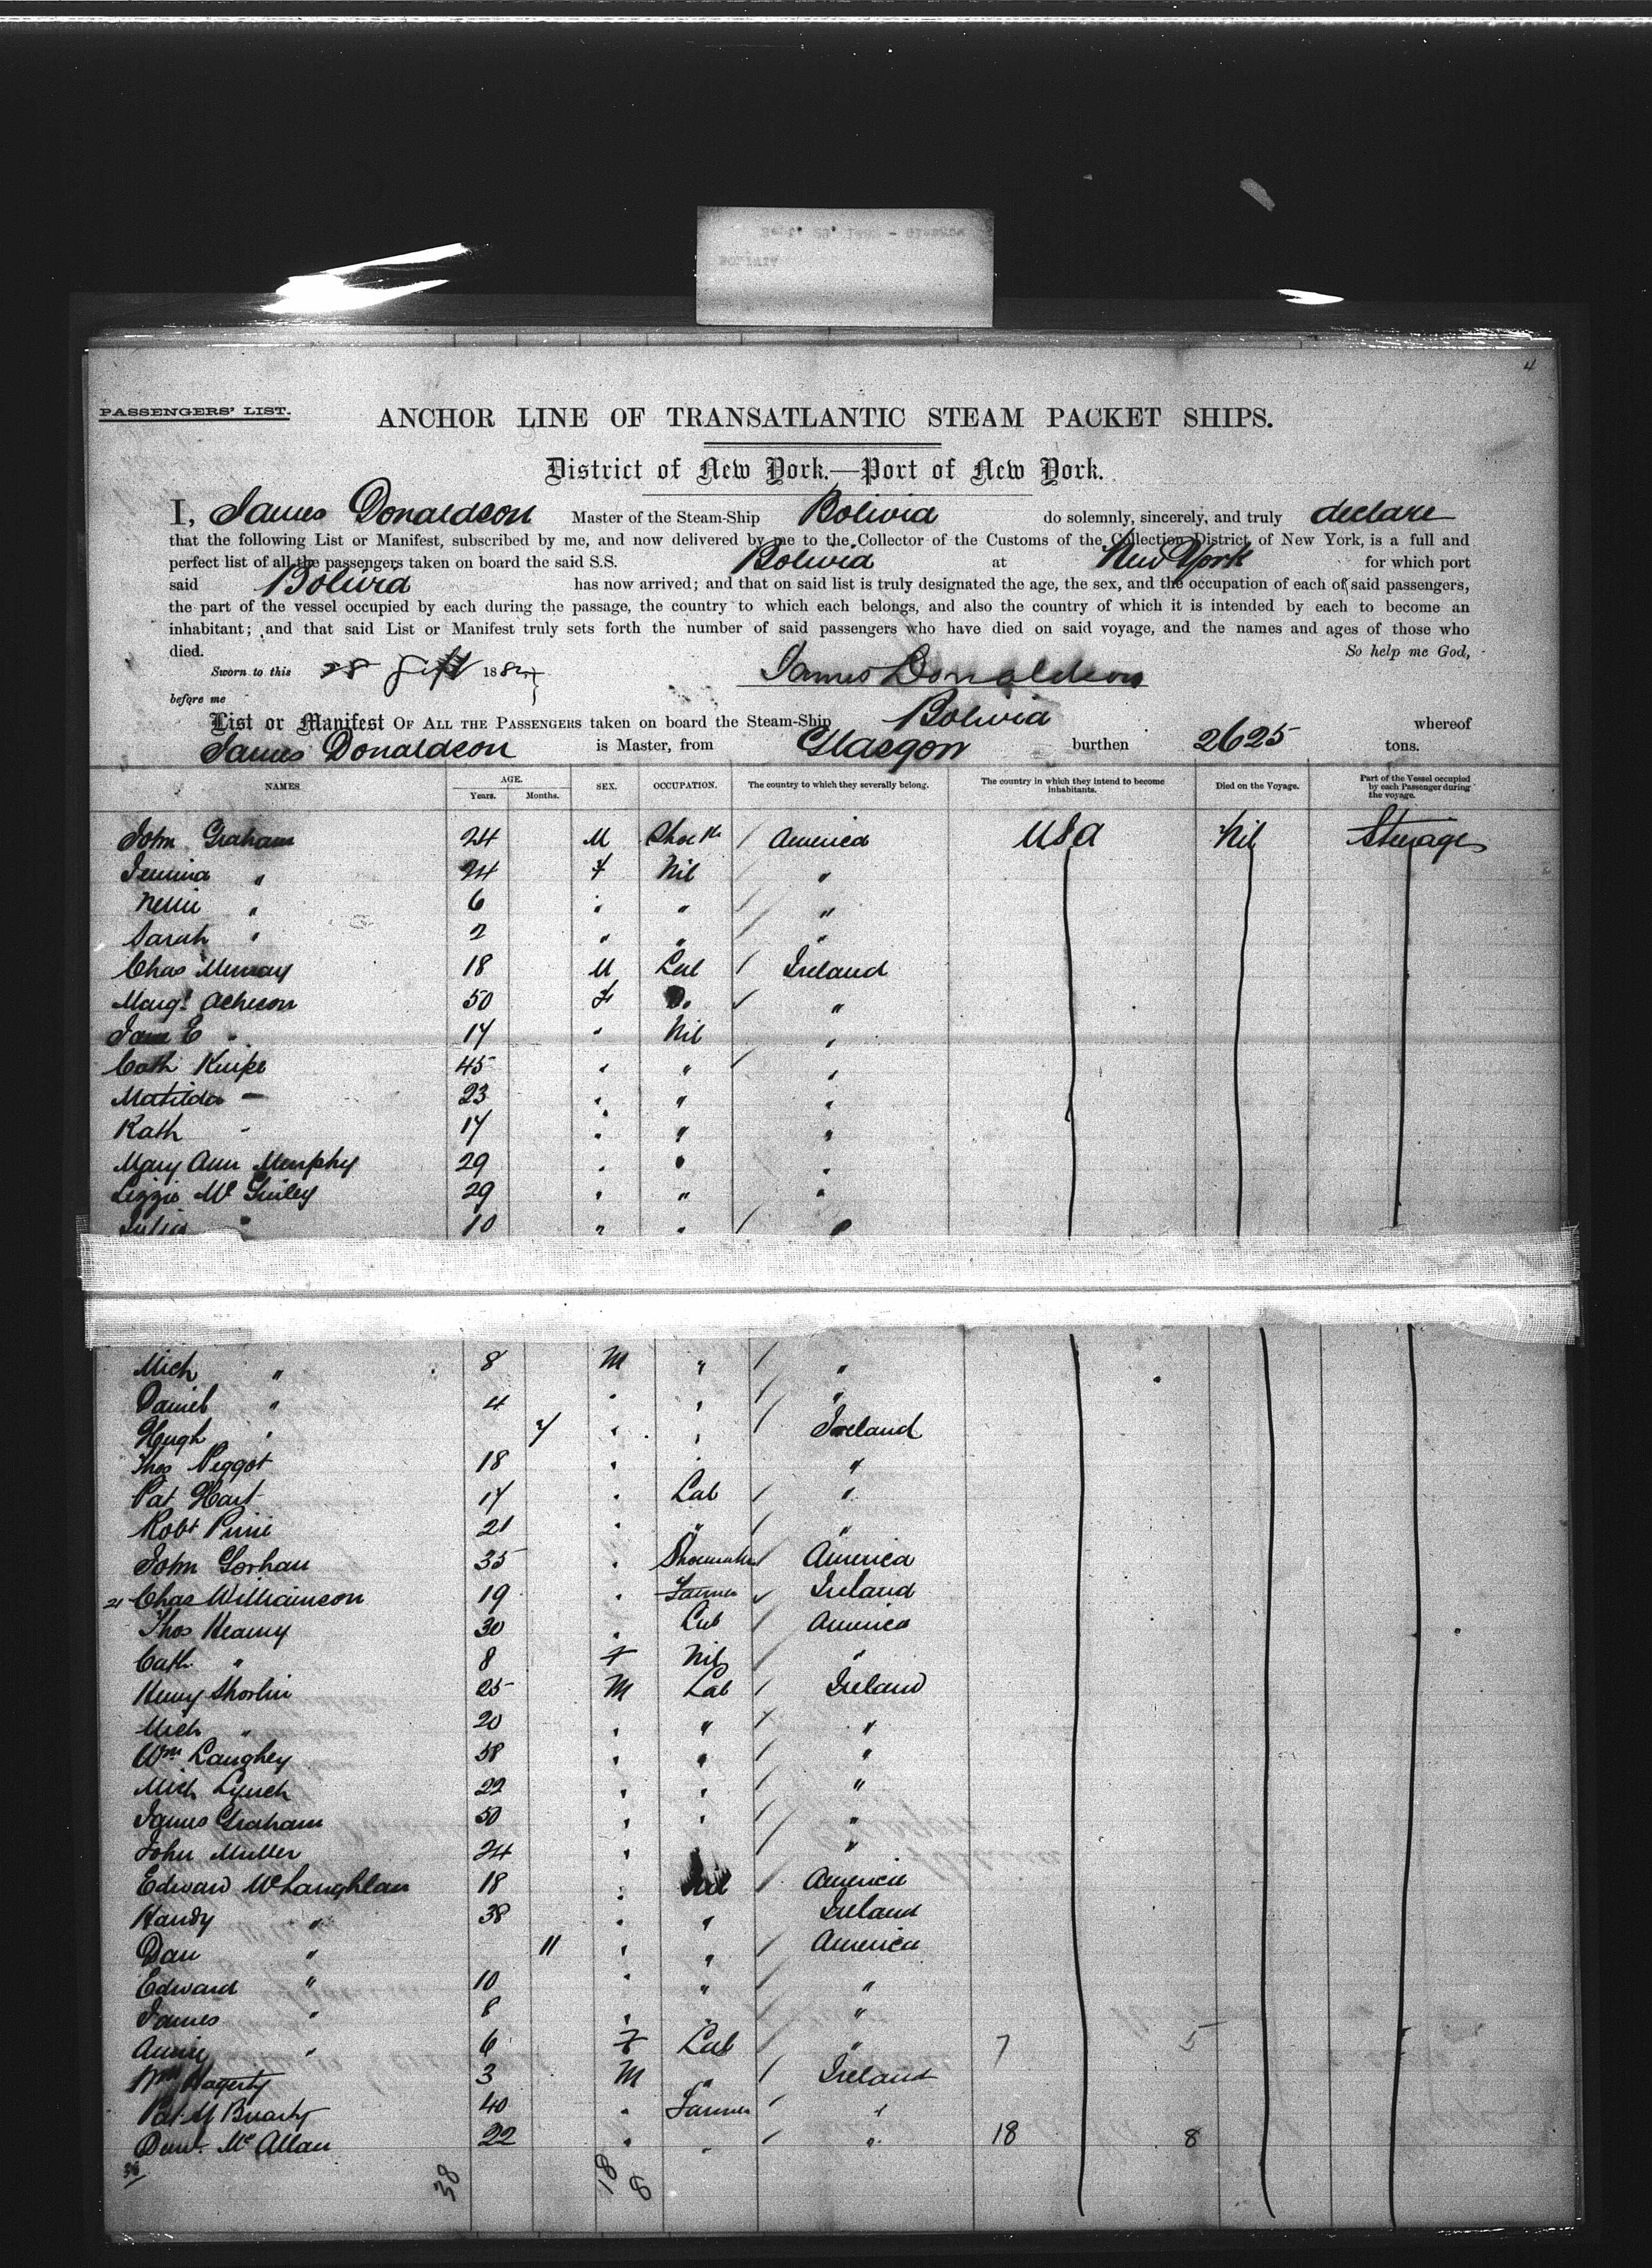 4
PASSENGERS' LIST.
ANCHOR LINE OF TRANSATLANTIC STEAM PACKET SHIPS.
District of New York.—Port of New York.
I, James Donaldson Master of the Steam-Ship Bolivia do solemnly, sincerely, and truly declare
that the following List or Manifest, subscribed by me, and now delivered by me to the Collector of the Customs of the Collection District of New York, is a full and
perfect list of all the passengers taken on board the said S.S. Bolivia at New York for which port
said Bolivia has now arrived; and that on said list is truly designated the age, the sex, and the occupation of each of said passengers,
the part of the vessel occupied by each during the passage, the country to which each belongs, and also the country of which it is intended by each to become an
inhabitant; and that said List or Manifest truly sets forth the number of said passengers who have died on said voyage, and the names and ages of those who
died. So help me God,
Sworn to this 28 188 James Donaldson
before me
List or Manifest OF ALL THE PASSENGERS taken on board the Steam-Ship Bolivia whereof
James Donaldson is Master, from Glasgow burthen 2625 tons.
NAMES AGE. Years. Months. SEX. OCCUPATION. The country to which they severally belong. The country in which they intend to become inhabitants. Died on the Voyage. Part of the Vessel occupied by each Passenger during the voyage.
John Graham 24 M / America USA Nil Steerage
Jemima " 24 F Nil "
Nellie " 6 " " / "
Sarah " 2 " " / "
Chas Murray 18 M Lab / Ireland
Margt Acheson 50 F "
Jane E " 17 " Nil "
Cath Knipe 45 " " / "
Matilda — 23 " " "
Kath - 17 " " "
Mary Ann Murphy 29 " " "
Lizzie Mc Guiley 29 " " "
Julia " 10 " " / "
Mich " 8 M " / "
Daniel " 4 " " / "
Hugh " 7 " " / Ireland
Thos Peggot 18 " "
Pat Hart 17 " Lab / "
Robt Pirrie 21 " " / "
John Gorhan 35 " Shoemaker / America
21 Chas Williamson 19 " Farmer Ireland
Thos Kearny 30 " Lab / America
Cath " 8 F Nil / "
Henry Shorlin 25 M Lab / Ireland
Mich " 20 " " / "
Wm Laughey 38 " " / "
Mich Lynch 22 " " / "
James Graham 50 " " / "
John Muller 24 " / "
Edward McLaughlan 18 " Nil / America
Handy " 38 " " Ireland
Dan " 11 " " / America
Edward " 10 " " / "
James " 8 " / "
Annie " 6 F Lab / " 7 5
Wm Hagerty 3 M " / Ireland
Pat 40 " Farmer / "
McAllan 22 " " / " 18 8
38 38 18 8